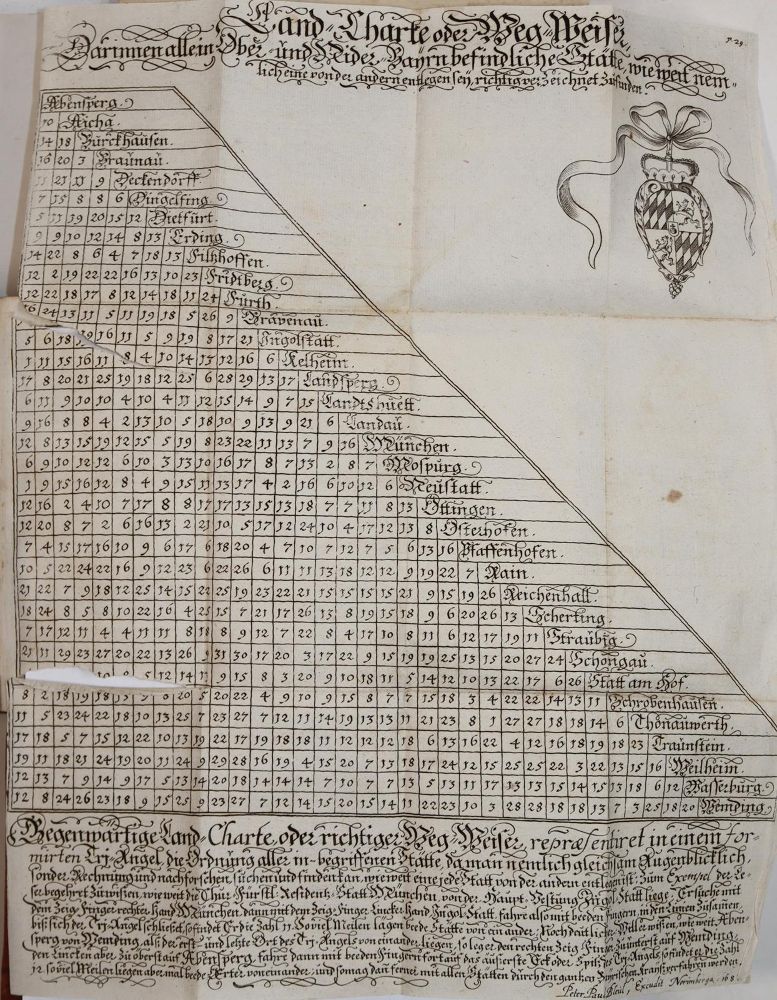 Land-Charte oder Weg-Weiser,
p. 29.
Darinnen allein Ober- und Nider-Bayrn befindliche Stätte, wie weit nem-
lich eine von der andern entlegen seÿ, richtig verzeichnet zufinden.
Abensperg.
10 Aicha.
14 18 Burckhausen.
16 20 3 Braunau.
11 21 11 9 Deckendorff.
7 15 8 8 6 Dingelfing.
5 11 19 20 15 12 Dietfurt.
9 9 10 12 14 8 13 Erding.
14 22 8 6 4 7 18 13 Filtzhoffen.
12 2 19 22 22 16 13 10 23 Fridberg.
12 22 18 17 8 12 14 18 11 24 Furth.
24 13 11 5 11 19 18 5 26 9 Gravenau.
5 6 18 19 16 11 5 9 19 8 17 21 Ingolstatt.
1 11 15 16 11 8 4 10 14 13 12 16 6 Kelheim.
17 8 20 21 25 19 18 12 25 6 28 29 13 17 Landsperg.
6 11 9 10 10 4 10 4 11 12 15 14 9 7 15 Landtshuett.
9 16 8 8 4 2 13 10 5 18 10 9 13 9 21 6 Landau.
12 8 13 15 19 12 15 5 19 8 23 22 11 13 7 9 16 München.
6 9 10 12 12 6 10 3 13 10 16 17 8 7 13 2 8 7 Mospurg.
1 9 15 16 12 8 4 9 15 11 13 17 4 2 16 6 10 12 6 Neustatt.
12 16 2 4 10 7 17 8 8 17 17 13 15 13 18 7 7 11 8 13 Ottingen.
12 20 8 7 2 6 16 13 2 21 10 5 17 12 24 10 4 17 12 13 8 Osterhofen.
7 4 15 17 16 10 9 6 17 6 18 20 4 7 10 7 12 7 5 6 13 16 Pfaffenhofen.
10 5 22 24 22 16 9 12 23 6 22 26 6 11 11 13 18 12 12 9 19 22 7 Rain.
21 22 7 9 18 12 25 14 15 22 25 19 23 22 21 15 15 15 15 21 9 15 19 26 Reichenhall.
18 24 8 5 8 10 22 16 4 25 15 7 21 17 26 13 8 19 15 18 9 6 20 26 13 Scherting.
7 17 12 11 4 4 11 11 8 18 8 9 12 7 22 8 4 17 10 8 11 6 12 17 19 11 Straubig.
21 11 29 23 27 20 22 13 26 9 31 30 17 20 3 17 22 9 15 19 19 25 13 15 20 27 24 Schongau.
9 15 8 3 20 9 10 18 11 5 14 12 10 13 22 17 6 26 Statt am Hof.
8 2 18 19 18 13 7 0 20 5 20 22 4 9 10 9 15 8 7 7 15 18 3 4 22 22 14 13 11 Schrobenhausen.
11 5 23 24 22 18 10 13 25 7 23 27 7 12 11 14 19 13 13 11 21 23 8 1 27 27 18 18 14 6 Thonauwerth.
17 18 5 7 15 12 22 10 13 19 22 17 19 18 18 11 12 12 12 18 6 13 16 22 4 12 16 18 19 18 23 Traunstein.
19 11 18 21 24 19 20 11 24 9 29 28 16 19 4 15 20 7 13 18 17 24 12 15 25 25 22 3 22 13 15 16 Weilheim.
12 13 7 9 14 9 17 5 13 14 20 18 14 14 14 7 10 7 7 13 5 13 11 17 13 13 15 14 15 13 18 6 12 Wasserburg.
12 8 24 26 23 18 9 15 25 9 23 27 7 12 14 15 20 15 14 11 22 23 10 3 28 28 18 18 13 7 3 25 18 20 Wemding.
Gegenwärtige Land-Charte, oder richtiger Weg-Weiser, repræsentiret in einem for-
mirten Trj-Angel, die Ordnung aller in-begriffenen Stätte, da man nemlich gleichsam Augenblicklich,
sonder Rechnung und nachforschen, suchen und finden kan, wie weit eine jede Statt von der andern entlegen ist: Zum Exempel der Le-
ser begehret zu wissen, wie weit die Chur-Fürstl. Residentz-Statt München, von der Haupt-Vestung Ingol-Statt liege, Ersuche mit
dem Zeig-Finger rechter Hand München, dann mit dem Zeig-Finger Lincker Hand Ingol-Statt, fahre also mit beeden fingern, in den Linien zusamen,
biß sich der Trj-Angel schliesset, so findet Er die Zahl 11. So viel Meilen lagen beede Stätte von einander. Noch deutlicher: Will er wissen, wie weit Aben-
sperg von Wemding, als der erst- und letzte Ort des Trj-Angels von einander liegen, so leget den rechten Zeig-Finger zu unterst auf Wemding,
den Lincken aber zu oberst auf Abensperg, fahrt dann mit beeden Fingern fort auf das äusserste Eck oder Spitz des Trj-Angels, so findet er die Zahl
12. so viel Meilen liegen aber mal beede Örter von einander; und so mag dan ferner mit allen Stätten durch den gantzen Land-Kraiß verfahren werden.
Peter Paul Bleul, Excudit Norimberga. 168